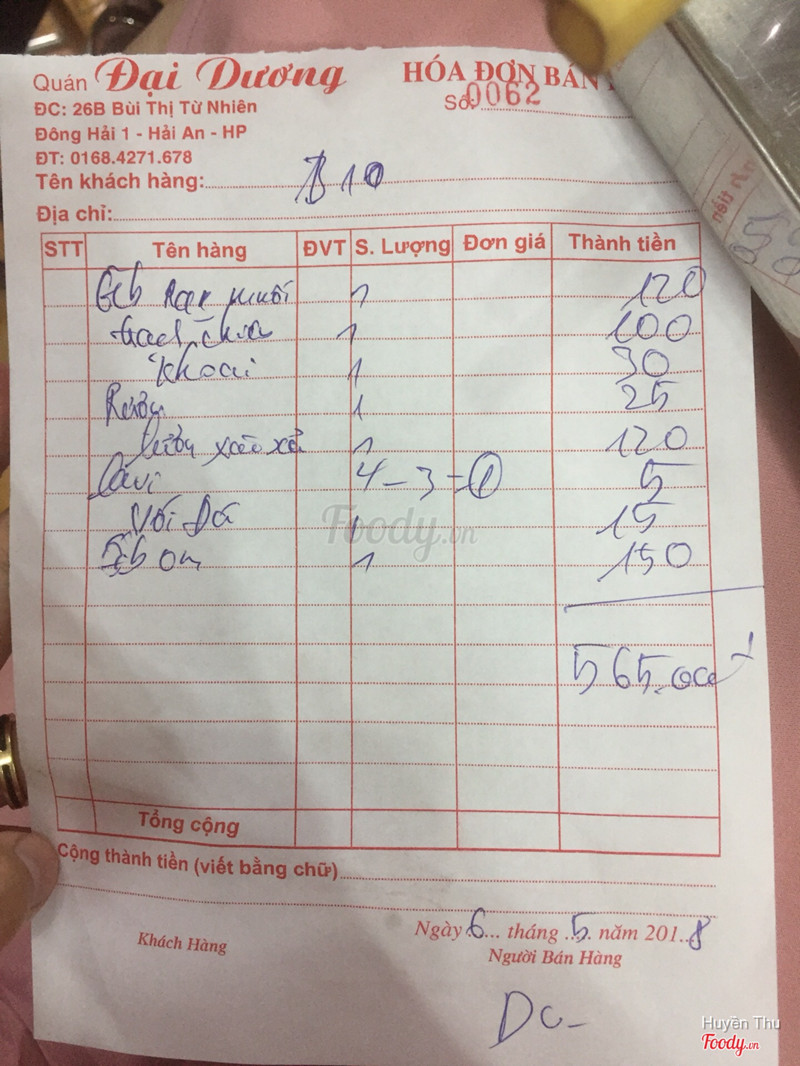 Quán Đại Dương
HÓA ĐƠN BÁN
Số: 0062
ĐC: 26B Bùi Thị Từ Nhiên
Đông Hải 1 - Hải An - HP
ĐT: 0168.4271.678
Tên khách hàng: B10
Địa chỉ:
STT Tên hàng ĐVT S. Lượng Đơn giá Thành tiền
rang muối 1 120
1 100
khoai 1 30
1 25
xào xả 1 120
Lavi 4 - 3 = 1 5
Vối đá 1 15
om 1 150
565.000
Tổng cộng
Cộng thành tiền (viết bằng chữ)
Ngày 6 tháng 5 năm 2018
Khách Hàng
Người Bán Hàng
Foody.vn
Huyền Thu
Foody.vn